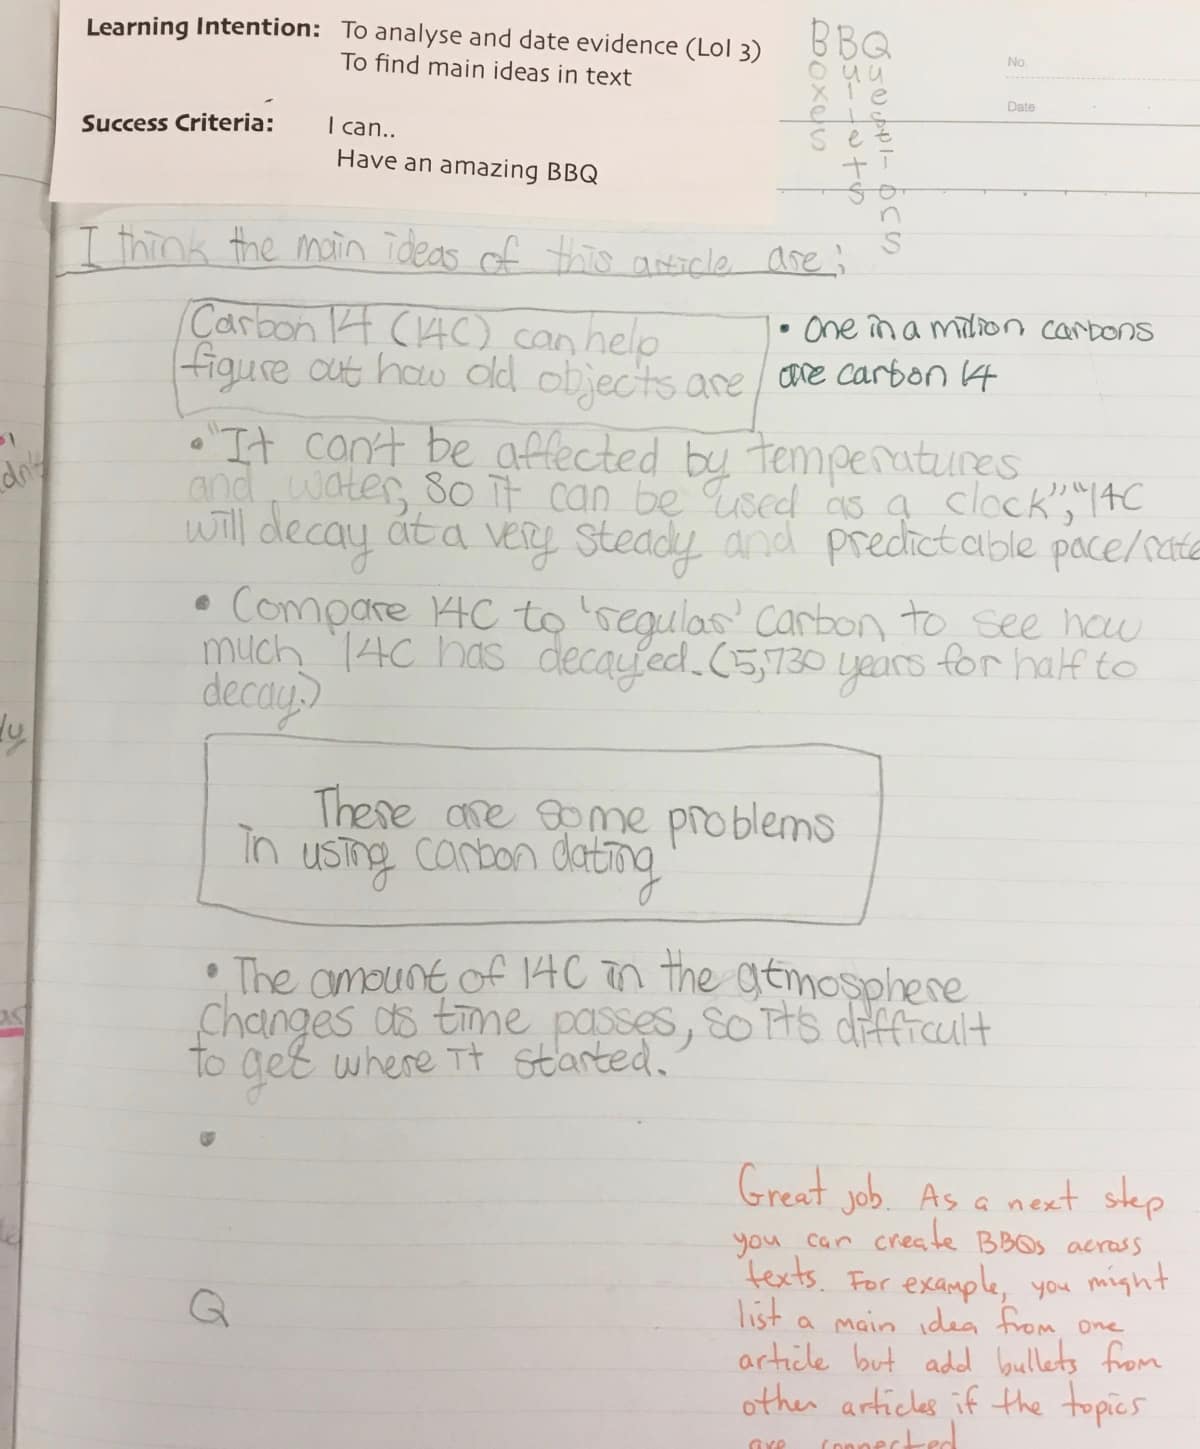 Learning Intention: To analyse and date evidence (LoI 3)
To find main ideas in text
Success Criteria: I can..
Have an amazing BBQ
BBQ
Boxes
Bullets
Questions
No.
Date
I think the main ideas of this article are;
Carbon 14 (14C) can help
figure out how old objects are
• One in a million carbons
are carbon 14
• "It can't be affected by temperatures
and water, so it can be "used as a clock", "14C
will decay at a very steady and predictable pace/rate
• Compare 14C to 'regular' carbon to see how
much 14C has decayed. (5,730 years for half to
decay.)
There are some problems
in using carbon dating
• The amount of 14C in the atmosphere
changes as time passes, so it's difficult
to get where it started.
•
Q
Great job. As a next step
you can create BBQs across
texts. For example, you might
list a main idea from one
article but add bullets from
other articles if the topics
are connected